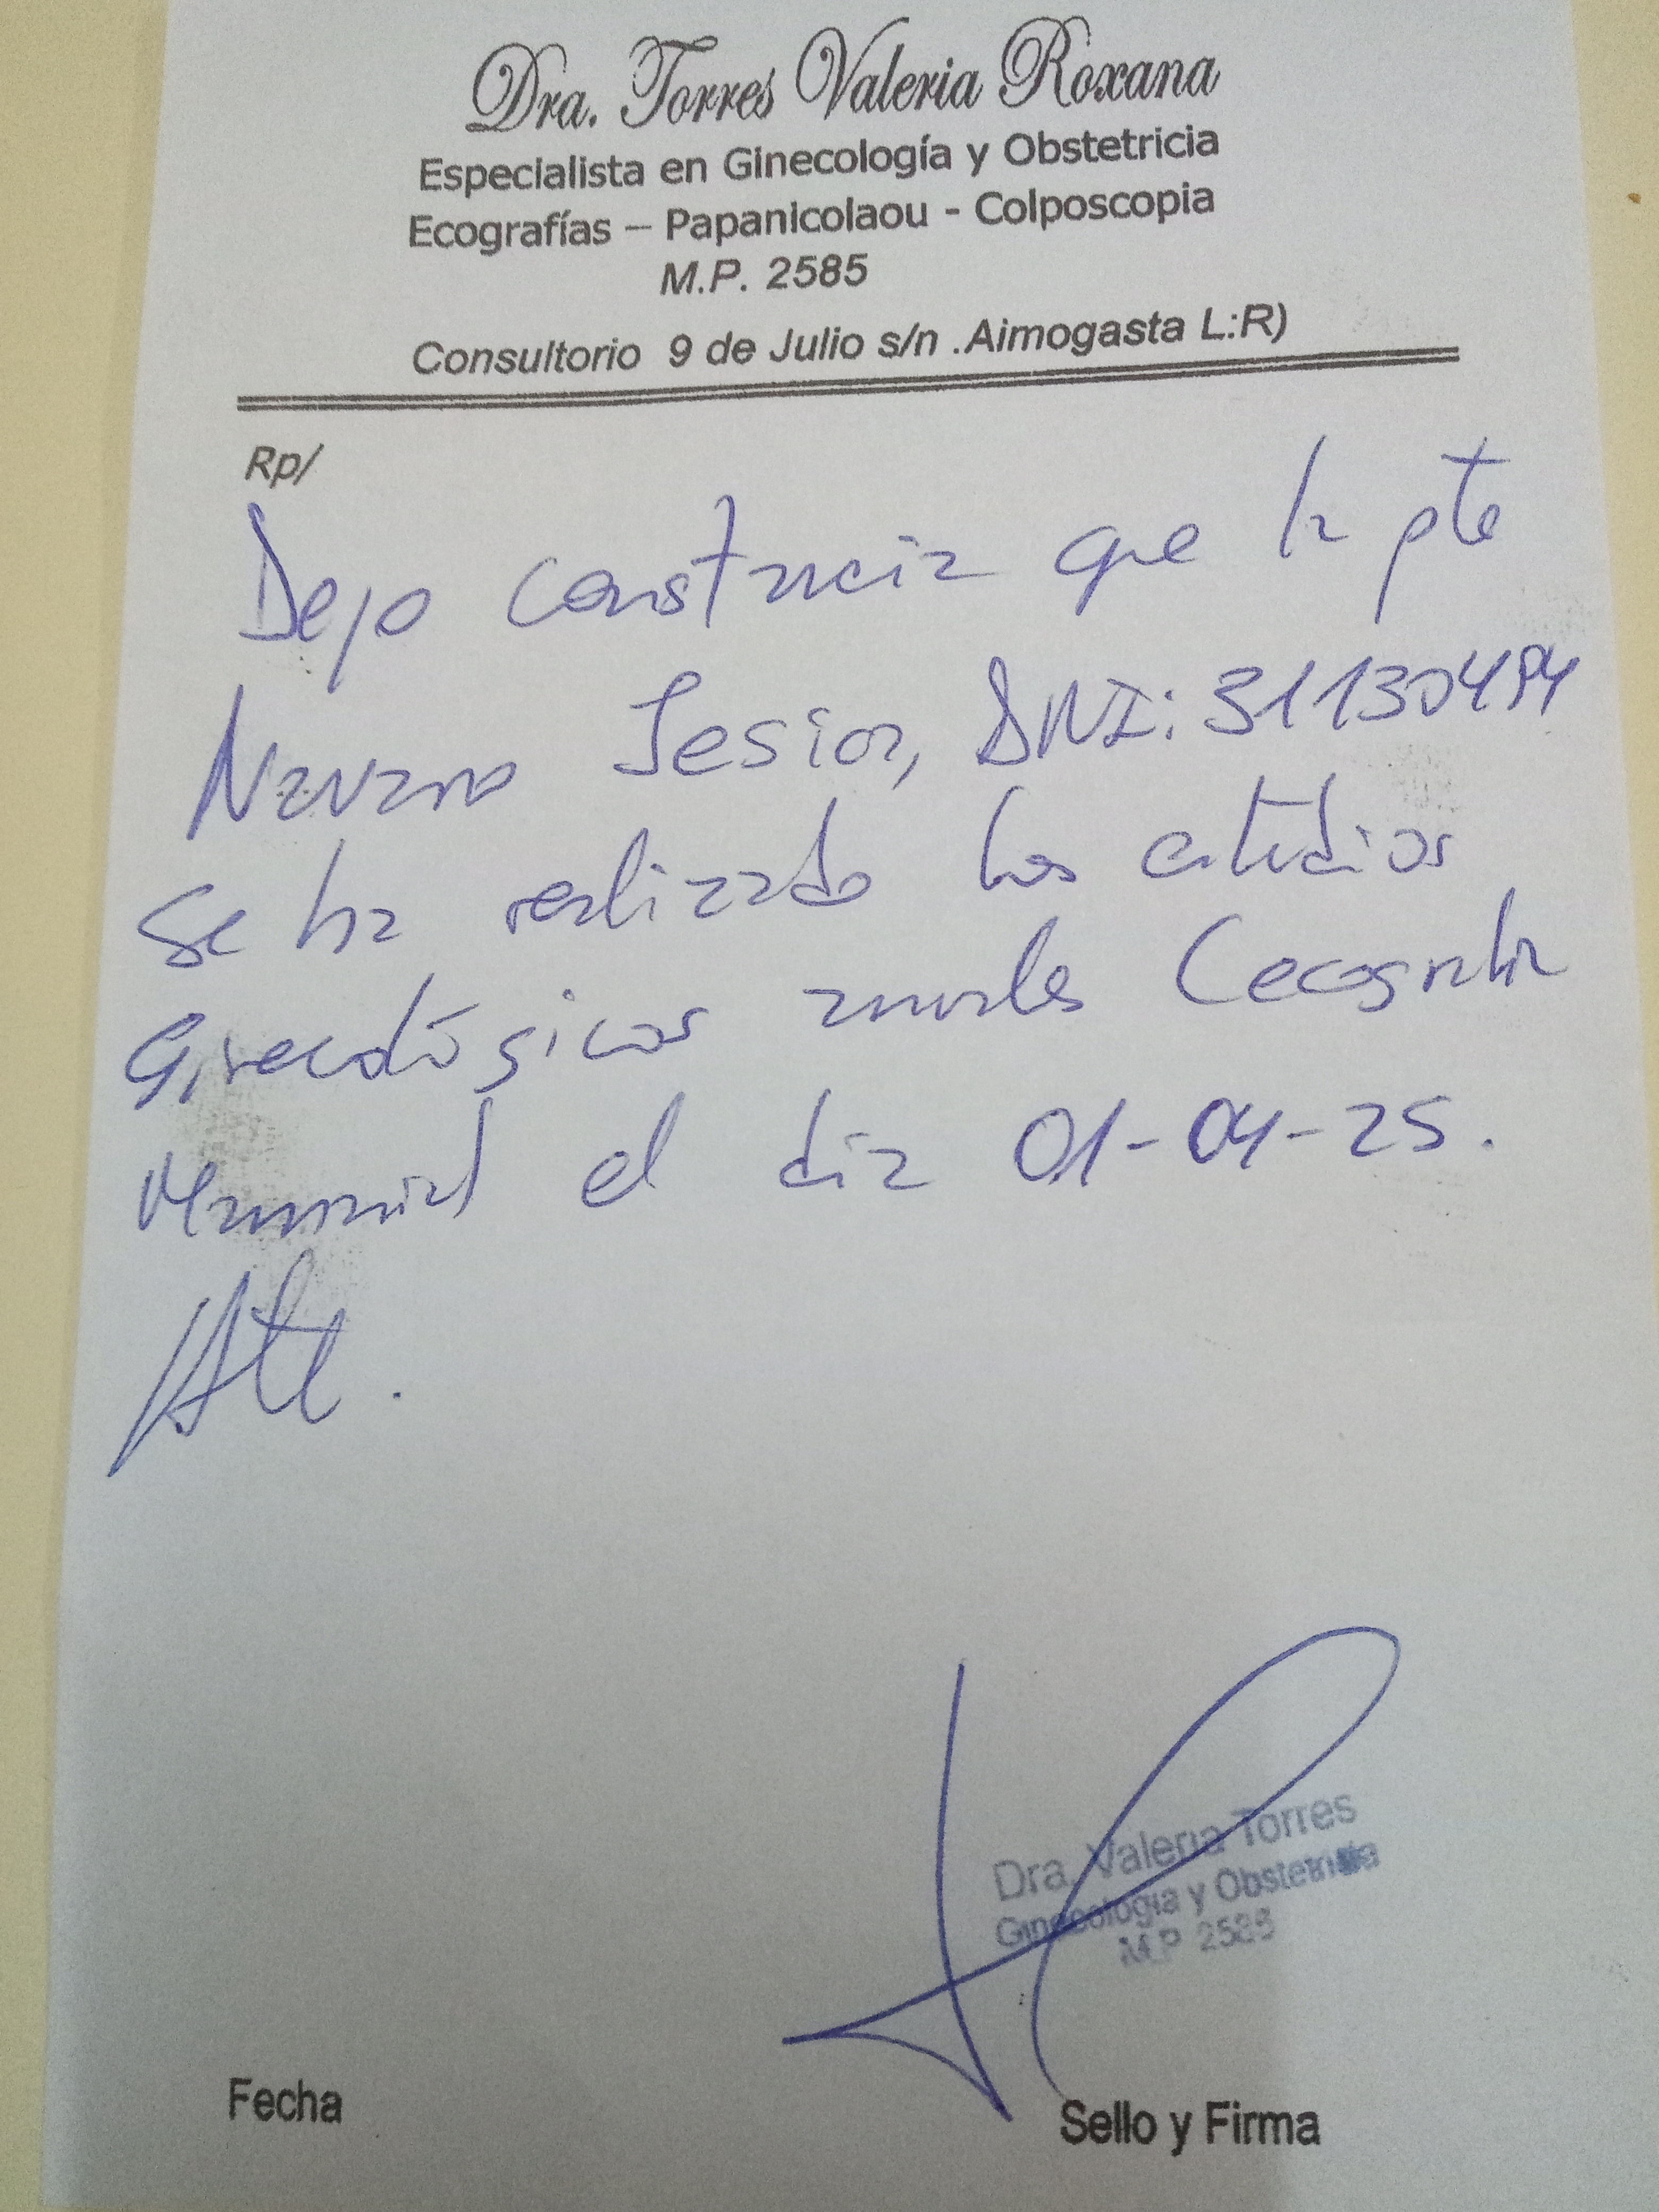 Dra. Torres Valeria Roxana
Especialista en Ginecología y Obstetricia
Ecografías – Papanicolaou - Colposcopia
M.P. 2585
Consultorio 9 de Julio s/n .Aimogasta L:R)
Rp/
Dejo constancia que la pte
Navarro DNI: 31130494
se ha realizado los estudios
Ginecológicos anuales
el día 01-04-25.
Atte.
Dra. Valeria Torres
Ginecología y Obstetricia
M.P 2585
Fecha
Sello y Firma